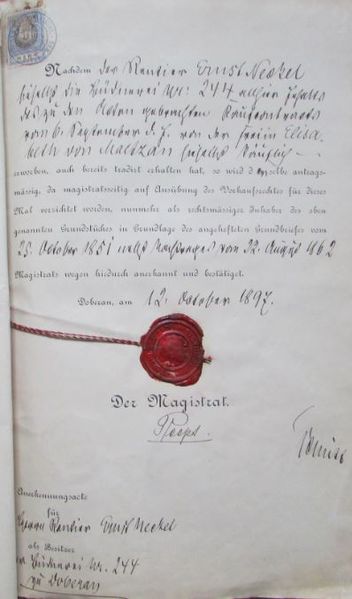 Nachdem der Rentier Ernst Neckel
hieselbst die Büdnerei Nr: 244 allhier Inhalts
des zu den Acten gebrachten Kaufcontracts
vom 6. September d. J. von der Freiin Elisa-
beth von Maltzan hieselbst käuflich
erworben, auch bereits tradirt erhalten hat, so wird derselbe antrags-
mässig, da magistratsseitig auf Ausübung des Vorkaufsrechtes für dieses
Mal verzichtet worden, nunmehr als rechtsmässiger Inhaber des eben
genannten Grundstückes in Grundlage des angehefteten Grundbriefes vom
25. October 1851 nebst Nachtrages vom 22. August 1862
Magistrats wegen hiedurch anerkannt und bestätiget.
Doberan, am 12. October 1897.
Der Magistrat.
Anerkennungsacte
für
Herrn Rentier Ernst Neckel
als Besitzer
der Büdnerei Nr. 244
zu Doberan